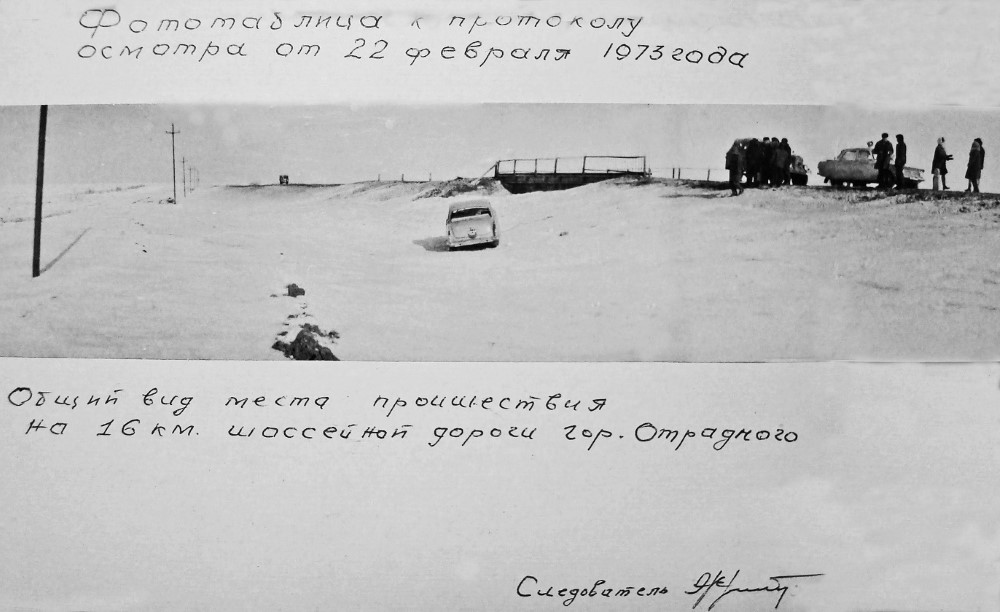 Фототаблица к протоколу
осмотра от 22 февраля 1973 года
Общий вид места проишествия
на 16 км. шоссейной дороги гор. Отрадного
Следователь